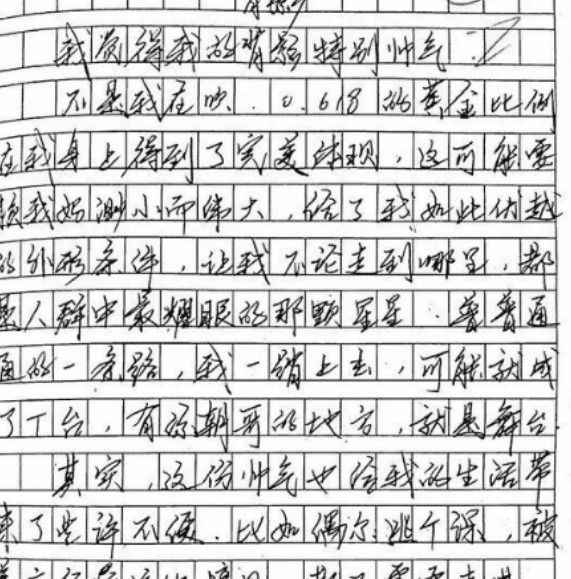 背影
我觉得我的背影特别帅气。
不是我在吹,0.618的黄金比例
在我身上得到了完美体现,这可能要
我妈渺小而伟大,给了我如此优越
的外形条件,让我不论走到哪里,都
是人群中最耀眼的那颗星星。普普通
通的一条路,我一踏上去,可能就成
了T台,有孙朝哥的地方,就是舞台。
其实,这份帅气也给我的生活带
来了些许不便。比如偶尔逃个课,被